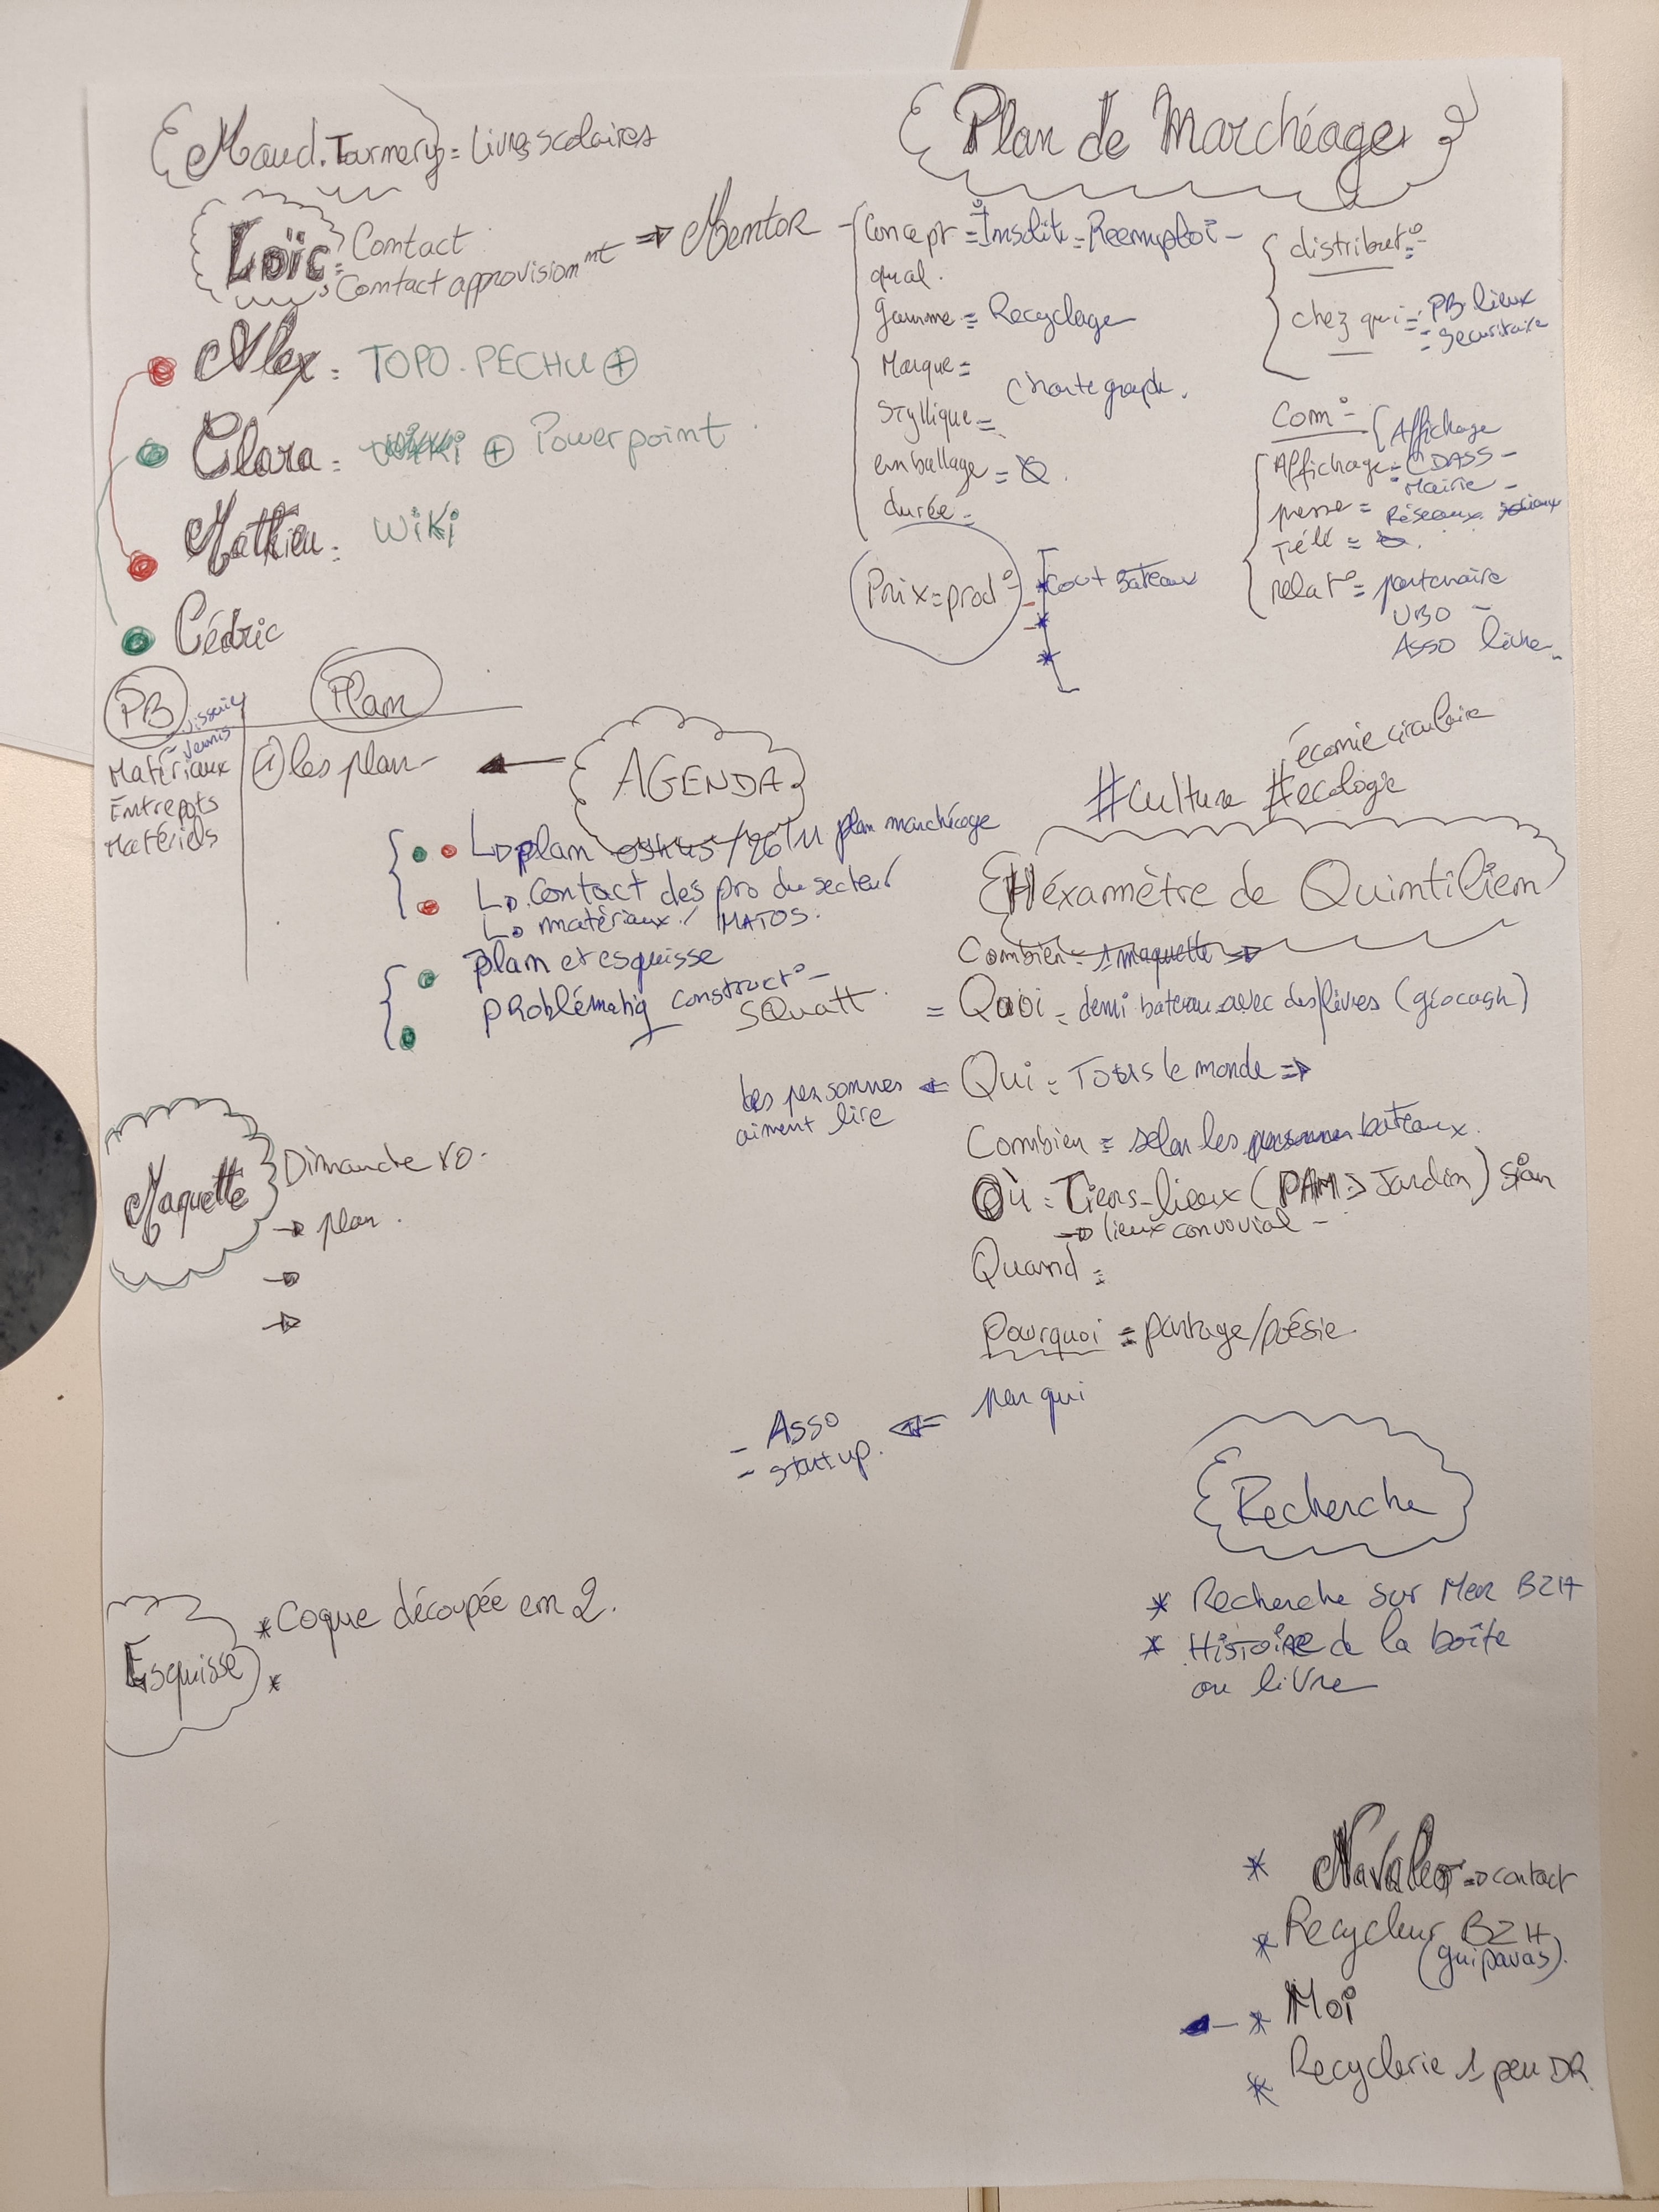 Maud. = Livres scolaires
Loïc = Contact
Contact approvision mt
⇒ Mentor
Alex = TOPO. PECHU ⊕
Clara = Wiki ⊕ Powerpoint
Mathieu = Wiki
Cédric
Plan de Marchéage
Concept = Insolite = Reemploi -
qual.
gamme = Recyclage
Marque =
Charte graph.
Styllique =
emballage =
durée =
Prix = prod° Cout Bateaux
distribut° =
chez qui = PB lieux
= Securitaire
Com° = Affichage
Affichage = CDASS -
Mairie -
presse = Réseaux
Télé =
relat° = partenaire
UBO -
Asso livre
PB
visserie
vernis
Matériaux
Entrepots
Matériels
Plan
① les plan -
AGENDA
plan plan marchéage
Contact des pro du secteur
matériaux / MATOS.
plan et esquisse
problématiq construct° -
SQuatt
économie circulaire
#Culture #ecologie
Héxamètre de Quintilien
Combien = 1 maquette ⇒
= Quoi = demi bateau avec des livres (géocash)
Qui = Tous le monde ⇒
les personnes
aiment lire
Combien = selon les bateaux.
Où = Tiers-lieux (PAM → Jardin)
→ lieux convovial -
Quand =
Pourquoi = partage/poésie.
par qui
- Asso
- startup.
Maquette
Dimanche
→ plan.
→
→
Recherche
* Recherche sur Mer BZH
* Histoire de la boîte
ou livre
Esquisse
* Coque découpée en 2.
*
* Navaleo ⇒ contact
* Recycleur BZH
(guipavas).
* Moi
* Recyclerie 1 peu DR